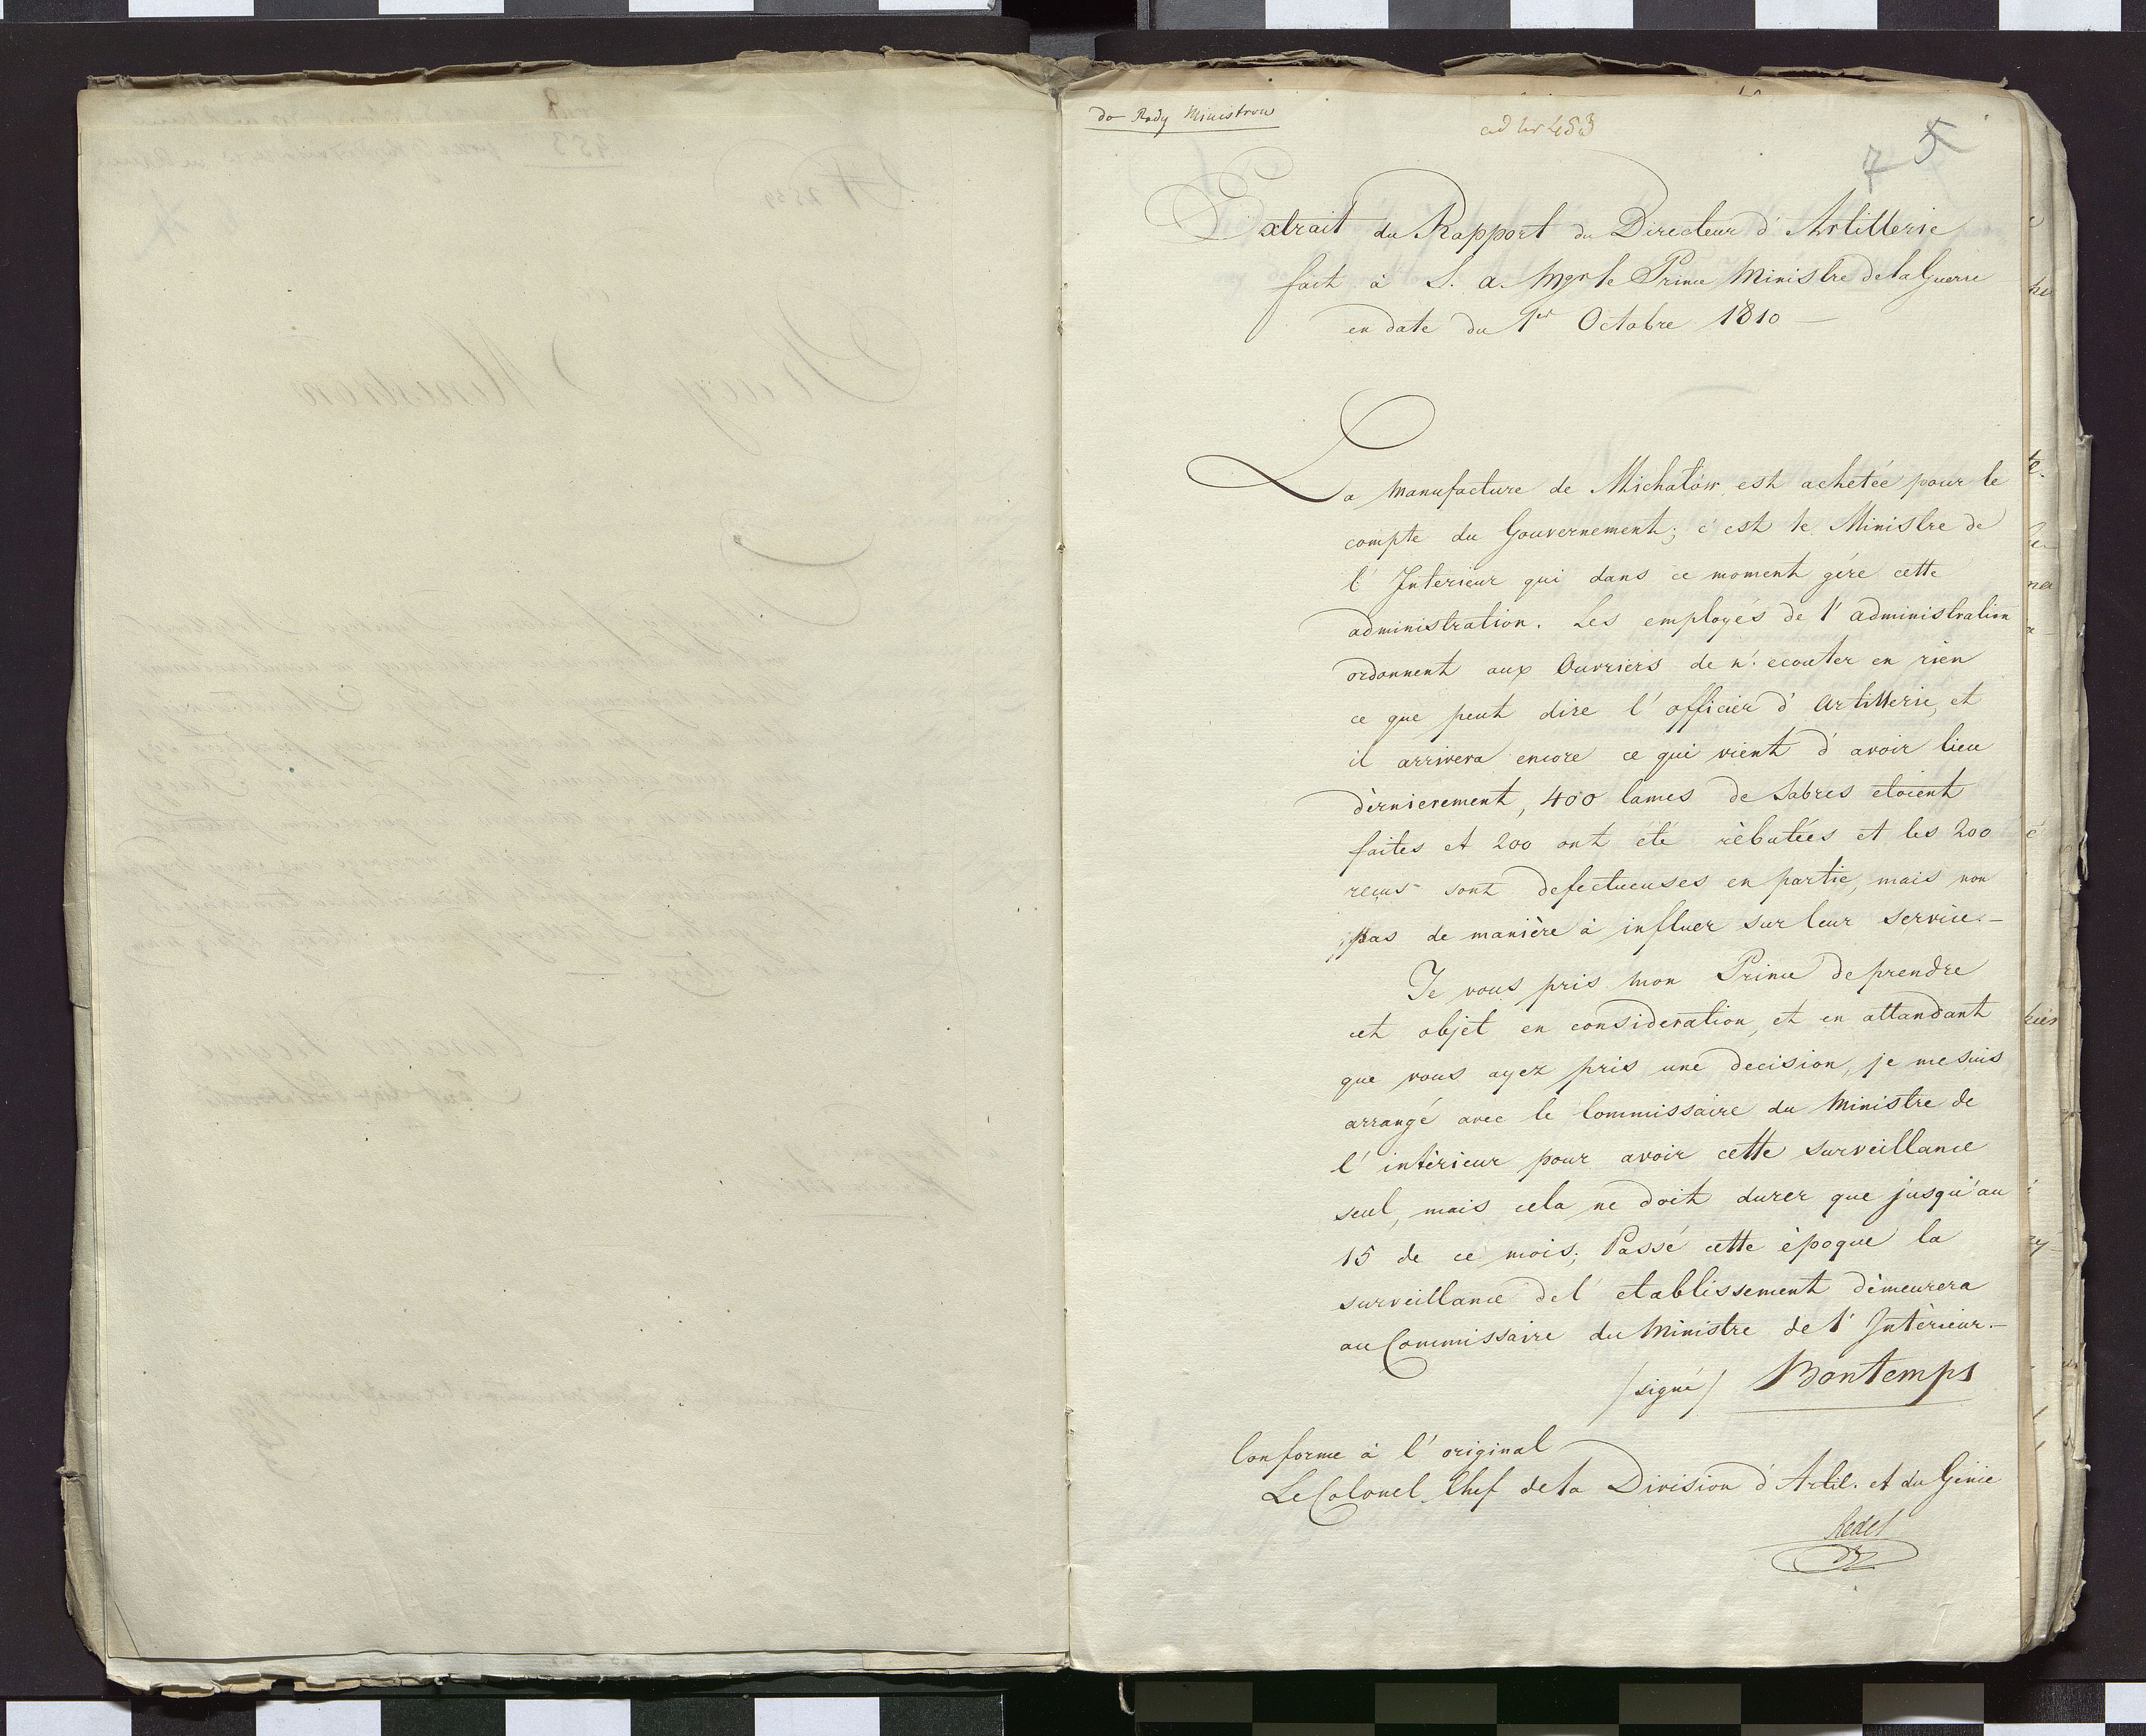 do Rady Ministrow
ad Nr 453
7 5
Extrait du Rapport du Directeur d'Artillerie
fait à S. A. Mgr le Prince Ministre de la Guerre
en date du 1er Octobre 1810 —
La Manufacture de Michałów est achetée pour le
compte du Gouvernement; c'est le Ministre de
l'Interieur qui dans ce moment gére cette
administration. Les employés de l'administration
ordonnent aux Ouvriers de n'ecouter en rien
ce que peut dire l'officier d'Artillerie, et
il arrivera encore ce qui vient d'avoir lieu
dèrnierement, 400 lames de Sabres etoient
faites et 200 ont été rèbutées et les 200
reçus sont defectueuses en partie, mais non
pas de manière à influer sur leur service.—
Je vous pris mon Prince de prendre
cet objet en consideration, et en attandant
que vous ayez pris une decision, je me suis
arrangé avec le Commissaire du Ministre de
l'intèrieur pour avoir cette surveillance
seul, mais cela ne doit durer que jusqu'au
15 de ce mois; Passé cette èpoque la
surveillance de l'etablissement dèmeurera
au Commissaire du Ministre de l'Intèrieur.—
/signé/ Bontemps
Conforme à l'original
Le Colonel Chef de la Division d'Artil. et du Génie
Redel